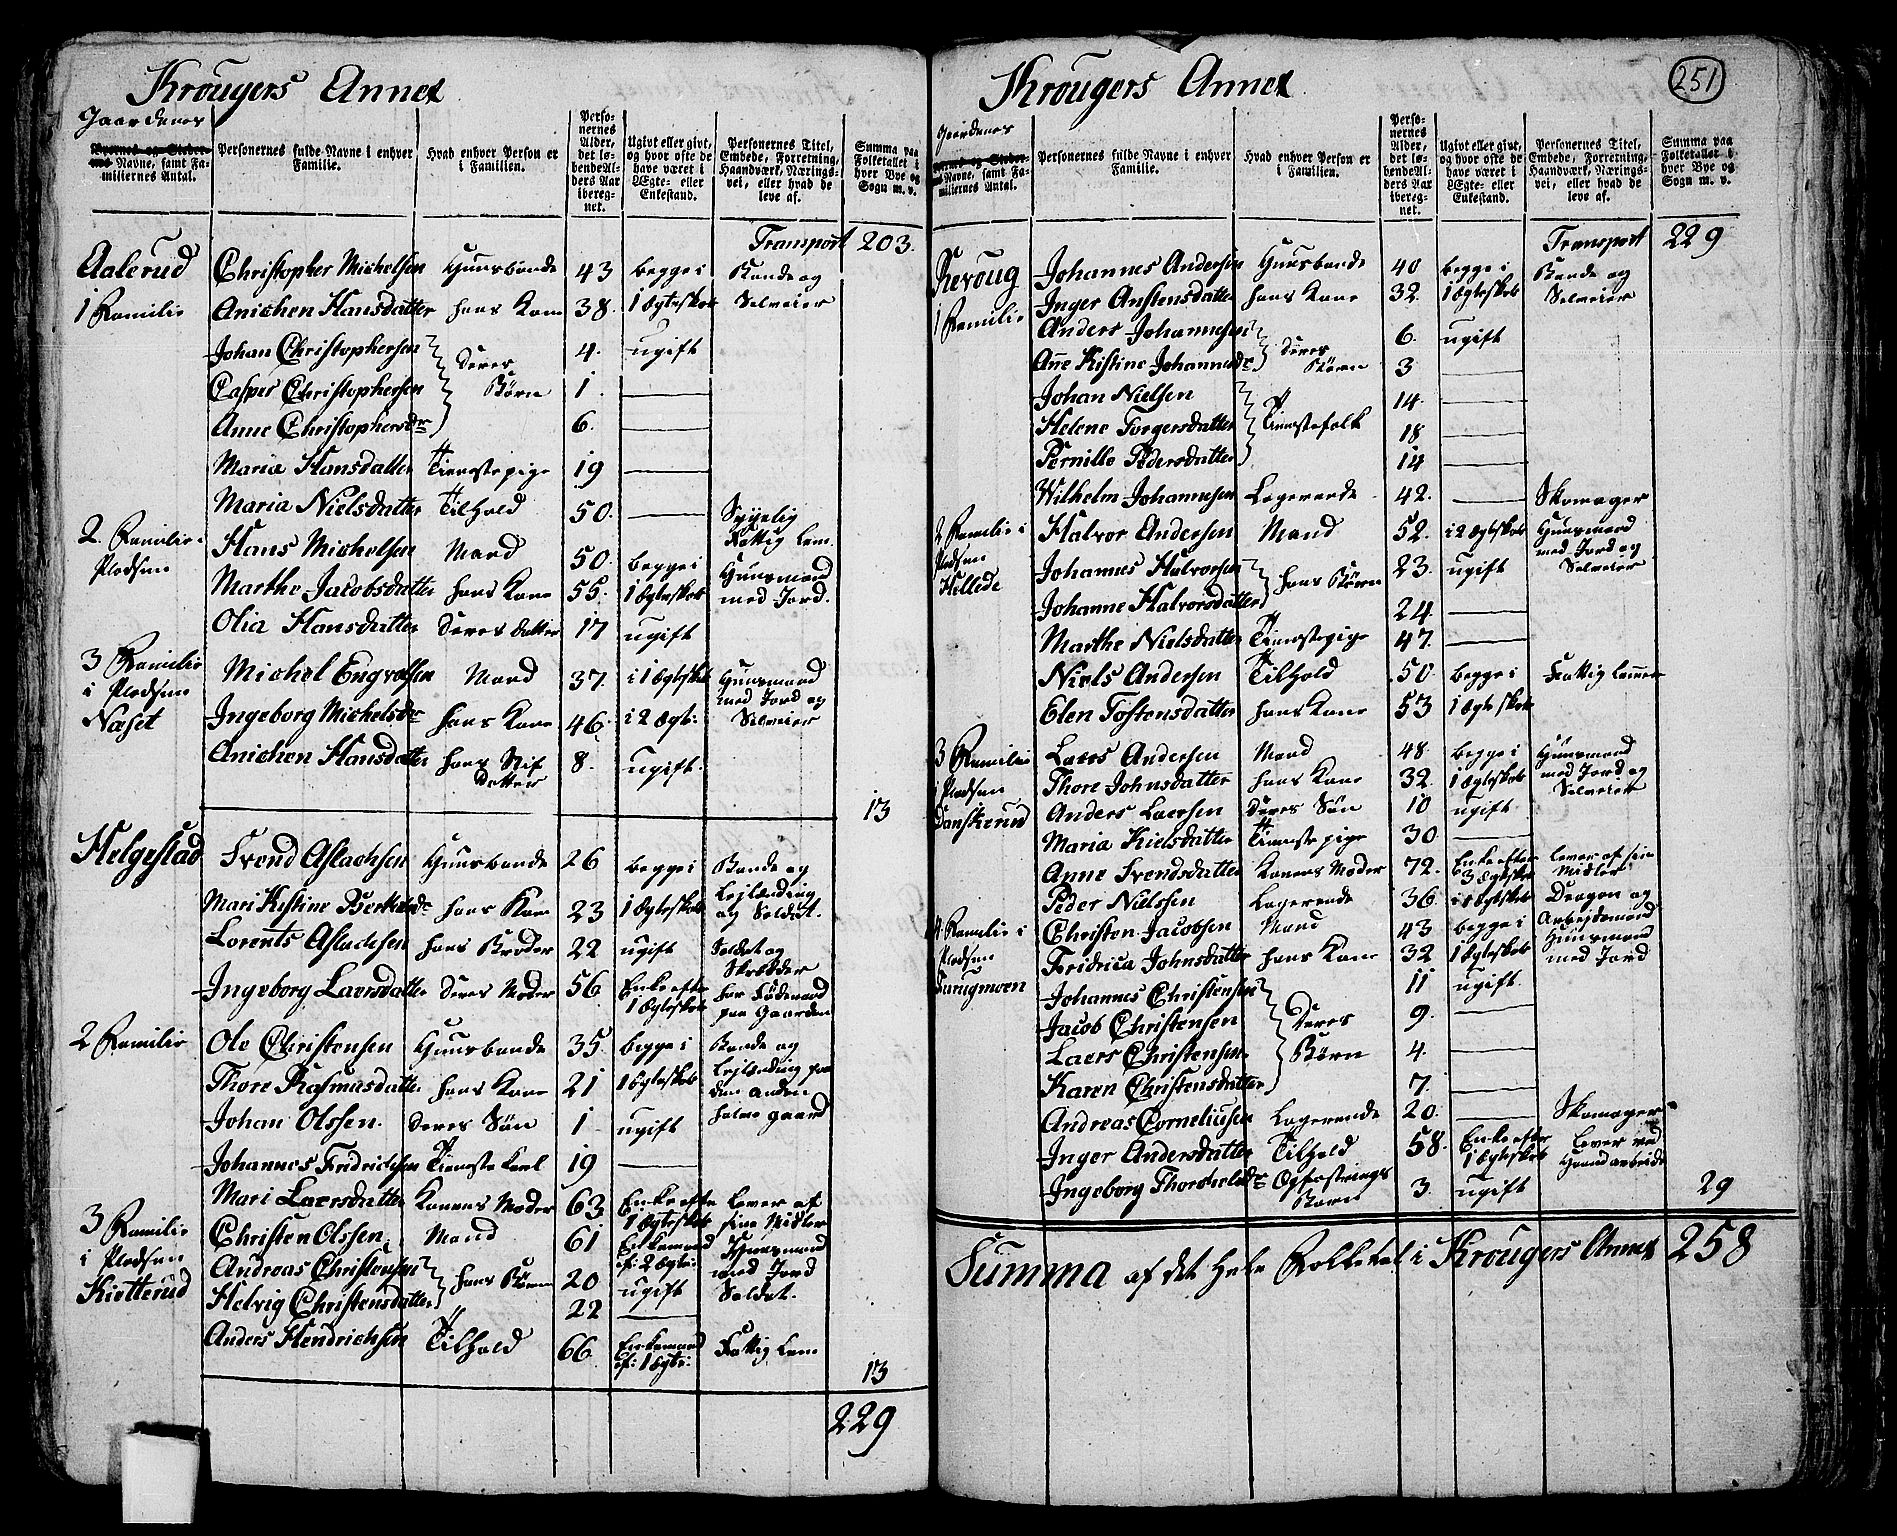 Krougers Annex
Gaardenes
Byernes og Stedernes Navne, samt Familiernes Antal.
Personernes fulde Navne i enhver Familie.
Hvad enhver Person er i Familien.
Personernes Alder, det løbende Alders Aar iberegnet.
Ugivt eller givt, og hvor ofte de have været i Ægte- eller Enkestand.
Personernes Titel, Embede, Forretning, Haandværk, Næringsvei, eller hvad de leve af.
Summa paa Folketallet i hver Bye og Sogn m. v.
Transport 203.
Aalerud Christopher Michelsen Huusbonde 43 begge i Bonde og
1 Familie Anichen Hansdatter hans Kone 38. 1 Ægteskab Selveier
Johan Christophersen deres 4. ugift
Casper Christophersen Børn 1. —
Anne Christophersdr 6. —
Maria Hansdatter Tienestepige 19 —
Maria Nielsdatter Tilhold 50. — Sygelig Fattig Lem.
2. Familie i Hans Michelsen Mand 50. begge i Huusmand
Pladsen Marthe Jacobsdatter hans Kone 55. 1 Ægteskab med Jord.
Olia Hansdatter deres datter 17 ugift
3 Familie Michel Engvolsen Mand 37. i 1 Ægteskab Huusmand
i Pladsen med Jord og
Næset Ingeborg Michelsdr hans Kone 46. i 2 Ægte: Selveier
Anichen Hansdatter hans Stif Datter 8. ugift.
13
Helgestad Svend Aslachsen Huusbonde 26 begge i Bonde og
Mari Kistine hans Kone 23 1 Ægteskab Lejlænding og Soldat.
Lorents Aslachsen hans Broder 22 ugift Soldat og Skrædder
Ingeborg Laersdatter deres Moder 56. Enke efter 1 Ægteskab har Føderaad paa Gaarden
2 Familie Ole Christensen Huusbonde 35. begge i Bonde og
Thore Rasmusdatter hans Kone 21 1 Ægteskab Lejlænding paa den anden
Johan Olssen. deres Søn 1. ugift halve gaard
Johannes Fridrichsen Tieneste Karl 19 —
Mari Laersdatter Konens Moder 63 Enke efter 1 Ægteskab Lever af sine Midler
3 Familie Christen Olssen Mand 61 Enkemand ef: 2 Ægte: Huusmand med Jord
i Pladsen Andreas Christensen hans Børn 20 ugift Soldat.
Kietterud Helvig Christensdatter 22 —
Anders Hendrichsen Tilhold 66 Enkemand ef: 1 Ægte: Fattig Lem
13
229
Krougers Annex
251
Gaardenes
Byernes og Stedernes Navne, samt Familiernes Antal.
Personernes fulde Navne i enhver Familie.
Hvad enhver Person er i Familien.
Personernes Alder, det løbende Alders Aar iberegnet.
Ugivt eller givt, og hvor ofte de have været i Ægte- eller Enkestand.
Personernes Titel, Embede, Forretning, Haandværk, Næringsvei, eller hvad de leve af.
Summa paa Folketallet i hver Bye og Sogn m. v.
Transport 229
Revoug Johannes Andersen Huusbonde 40 begge i Bonde og
1 Familie Inger Anstensdatter hans Kone 32. 1 Ægteskab Selveier
Anders Johannesen deres 6. ugift
Añe Kistine Johannesdr Børn 3 —
Johan Nielsen 14. —
Helene Torgersdatter Tienestefolk 18 —
Pernille Pedersdatter 14 —
Wilhelm Johannesen Logerende 42. — Skomager
2 Familie i Halvor Andersen Mand 52. i 2 Ægteskab Huusmand med Jord og
Pladsen Johannes Halvorsen hans Børn 23. ugift Selveier
Hellede Johanne Halvorsdatter 24 —
Marthe Nielsdatter Tienestepige 47. —
Niels Andersen Tilhold 50. begge i Fattig Lemer
Elen Tostensdatter hans Kone 53 1 Ægteskab
3 Familie Laers Andersen Mand 48. begge i Huusmand
i Pladsen Thore Johnsdatter hans Kone 32. 1 Ægteskab med Jord og
Danskerud Anders Laersen deres Søn 10 ugift Selveier
Maria Kielsdatter Tienestepige 30 —
Anne Svendsdatter Konens Moder 72. Enke efter 3 Ægteskab Lever af sin Midler
Peder Nielssen Logerende 36. i 1 Ægteskab Dragon og Arbejdsmand
4 Familie i Christen Jacobsen Mand 43 begge i Huusmand
Pladsen Fridrica Johnsdatter hans Kone 32 1 Ægteskab med Jord
Furugmoen Johannes Christensen 11 ugift.
Jacob Christensen Deres 9. —
Laers Christensen Børn 4. —
Karen Christensdatter 7. —
Andreas Corneliusen Logerende 20. — Skomager
Inger Andersdatter Tilhold 58. Enke efter 1 Ægteskab Lever ved Haandarbeide
Ingeborg Thorsteldr Opfostrings Barn 3. ugift
29
Summa af det hele Folketal i Krougers Annex 258